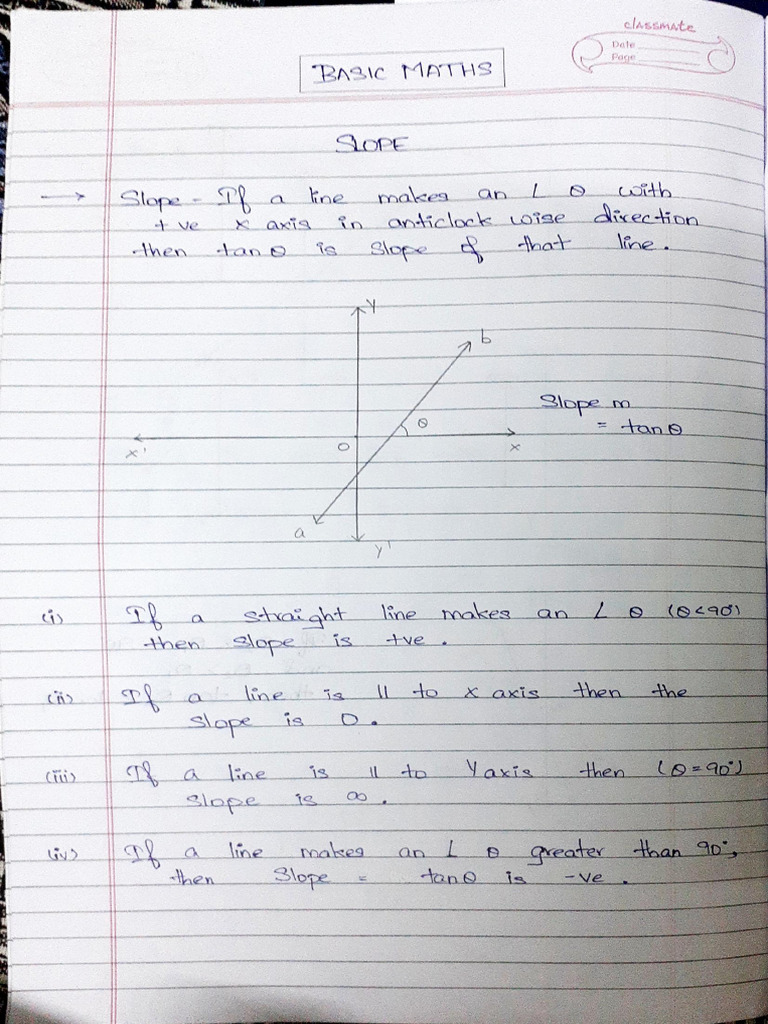 classmate
Date
Page
BASIC MATHS
SLOPE
→ Slope - If a line makes an ∠ θ with
+ve x axis in anticlock wise direction
then tanθ is slope of that line.
Y
b
Slope m
= tanθ
θ
O
x'
x
a
Y'
(i) If a straight line makes an ∠ θ (θ<90°)
then slope is +ve.
(ii) If a line is || to x axis then the
slope is 0.
(iii) If a line is || to Y axis then (θ=90°)
slope is ∞.
(iv) If a line makes an ∠ θ greater than 90°,
then Slope = tanθ is -ve.